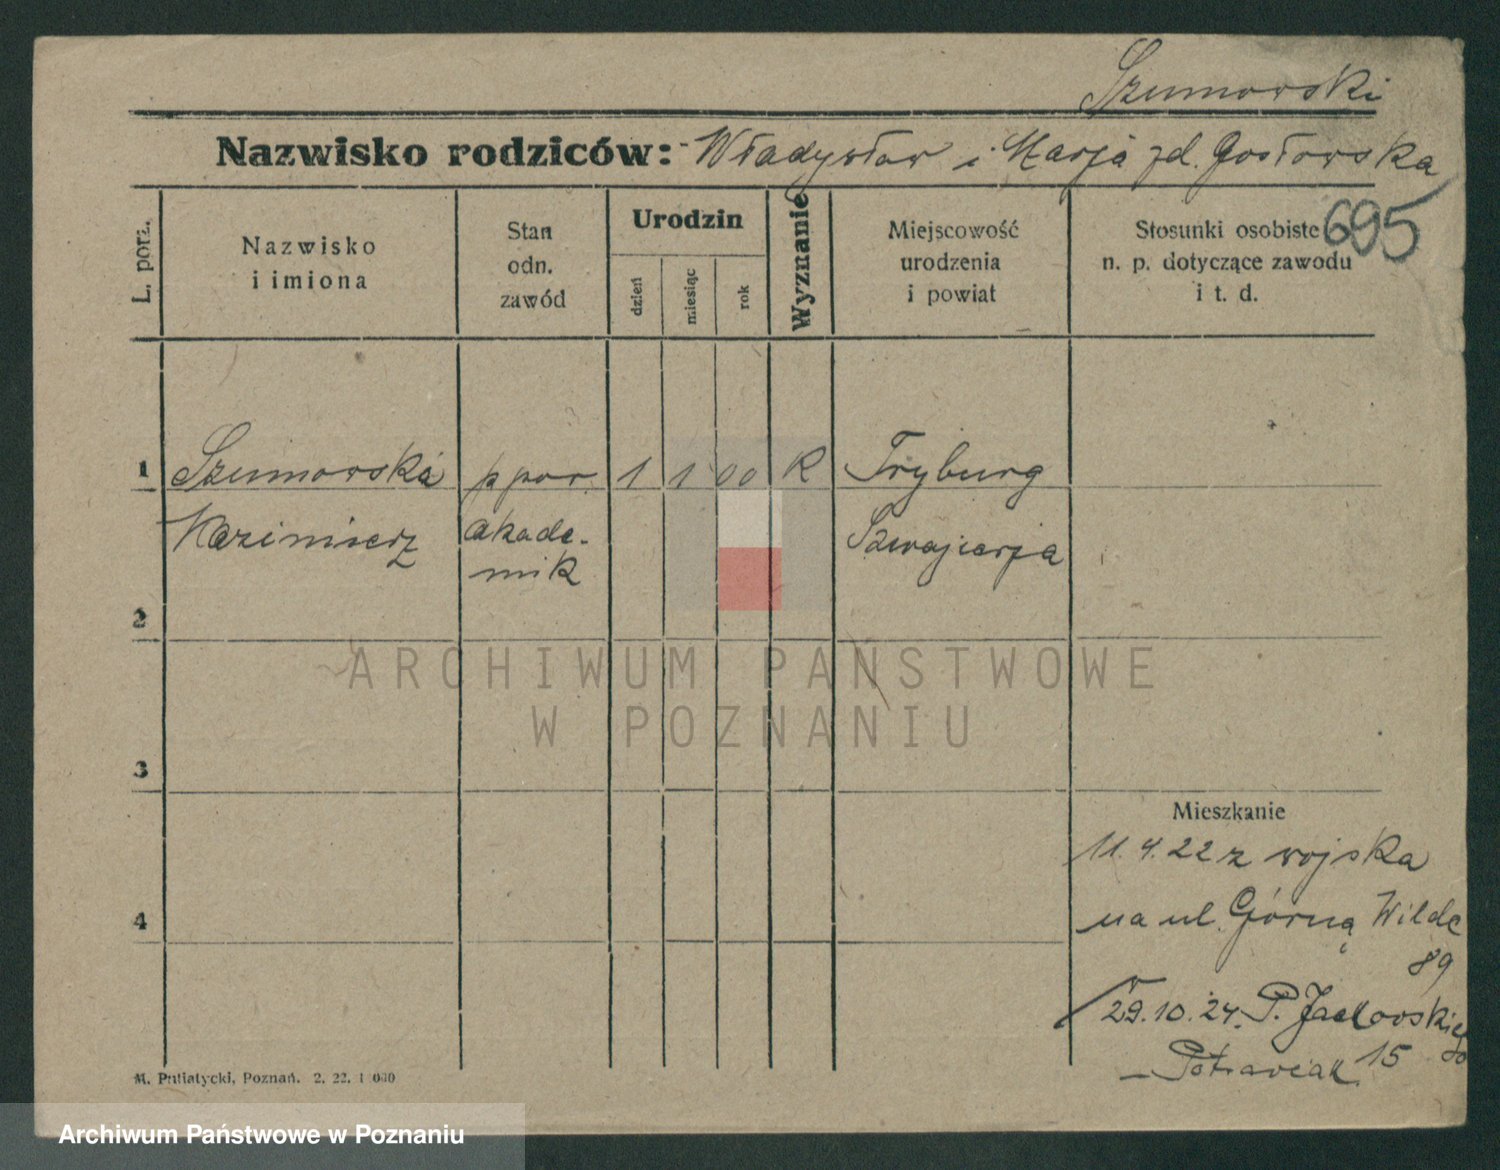 Szumowski
Nazwisko rodziców: Władysław i Marja zd. Gosłowska
695
L. porz.
Nazwisko
i imiona
Stan
odn.
zawód
Urodzin
dzień
miesiąc
rok
Wyznanie
Miejscowość
urodzenia
i powiat
Stosunki osobiste
n. p. dotyczące zawodu
i t. d.
1 Szumowski ppor. 1 1 00 K Fryburg
Kazimierz akade- Szwajcarja
mik
2
ARCHIWUM PAŃSTWOWE
W POZNANIU
3
Mieszkanie
11.4.22 z wojska
na ul. Górną Wildę
4
89
29.10.24. P. Jackowskiego
15
M. Putiatycki, Poznań. 2. 22. 1 000
Archiwum Państwowe w Poznaniu